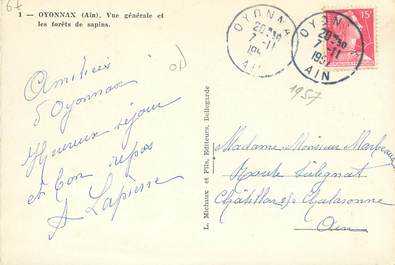 67
1 — OYONNAX (Ain). Vue générale et
les forêts de sapins.
Amitiés
d'Oyonnax
Heureux séjour
et bon repos
A Lapierre
L. Michaux et Fils, Editeurs, Bellegarde
OYONNAX
20H30
7-11
195
AIN
OYONNAX
20H30
7-11
1957
AIN
15F
1957
Madame, Monsieur
Route
Châtillon s/ Chalaronne
Ain